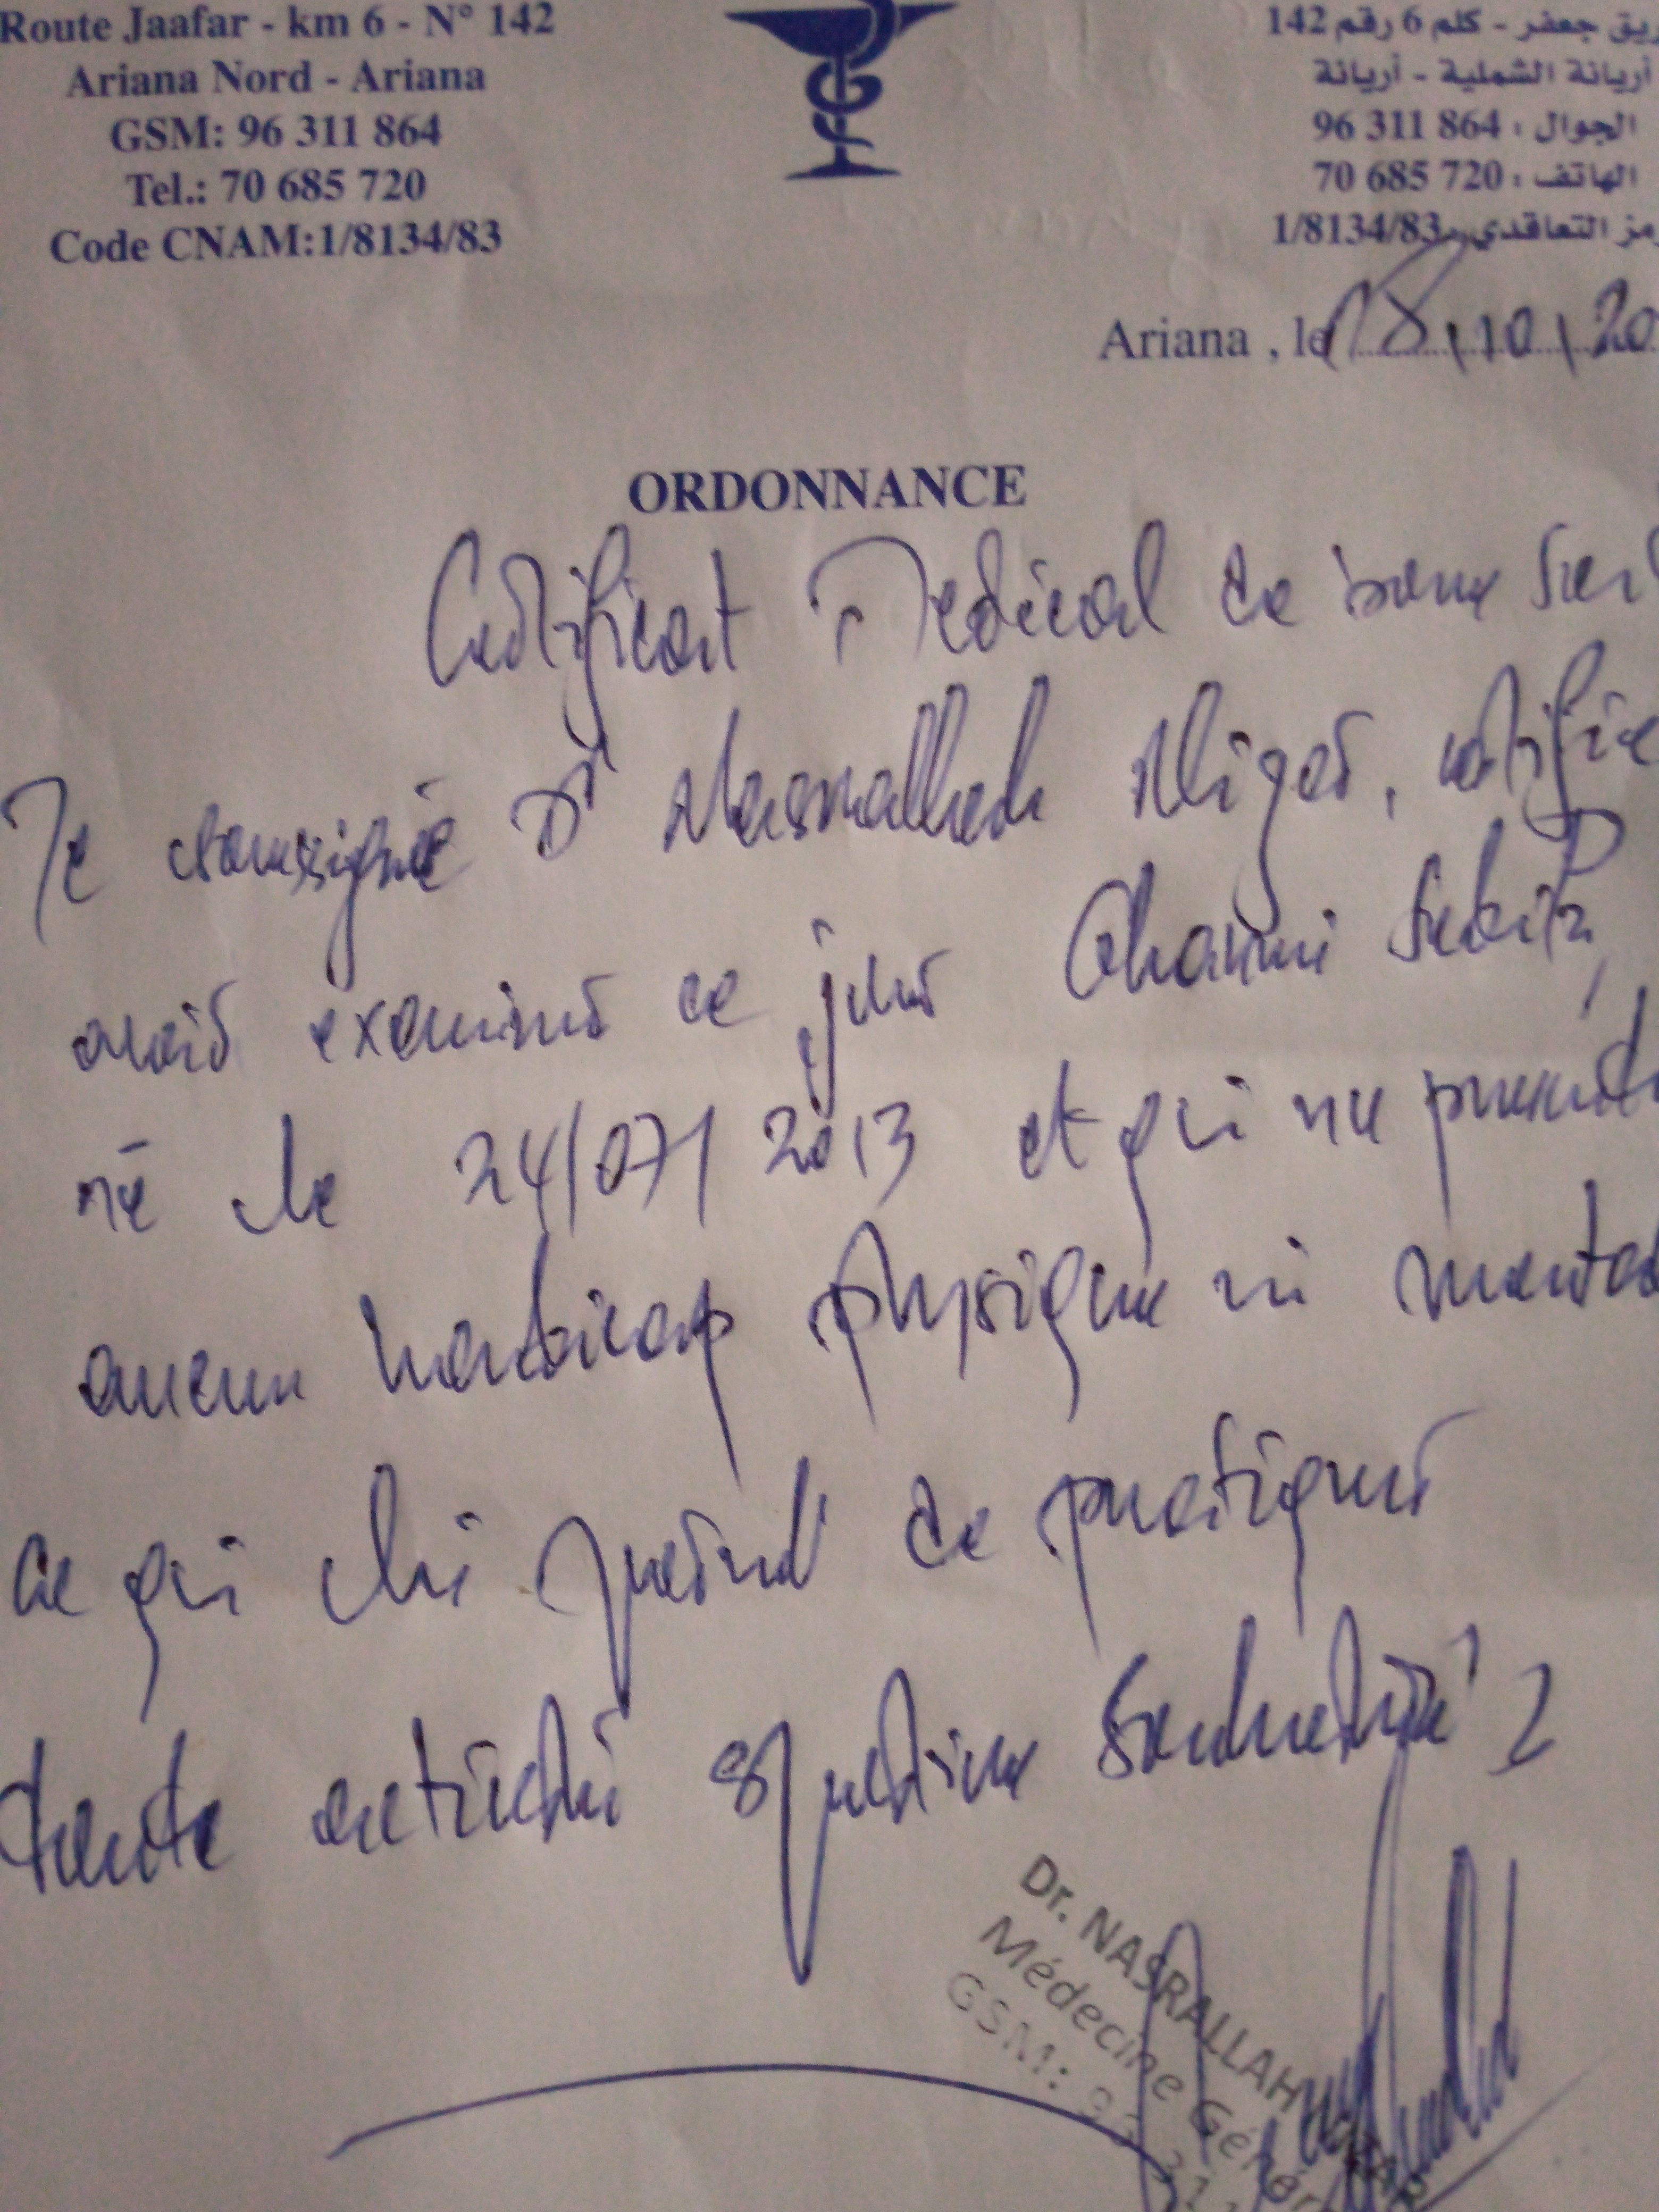 Route Jaafar - km 6 - N° 142
Ariana Nord - Ariana
GSM: 96 311 864
Tel.: 70 685 720
Code CNAM:1/8134/83
ريق جعفر - كلم 6 رقم 142
أريانة الشملية - أريانة
الجوال : 864 311 96
الهاتف : 720 685 70
رمز التعاقدي : 1/8134/83
Ariana , le 18/10/20
ORDONNANCE
Certificat Medical de bonne
Je soussigné Dr Nasrallah, certifie
avoir examiné ce jour Ghanmi
né le 24/07/2013 et qui ne présente
aucun handicap physique ni mental
ce qui lui permet de pratiquer
toute activité sportive
Dr. NASRALLAH
Médecine Génér
GSM: 96 31